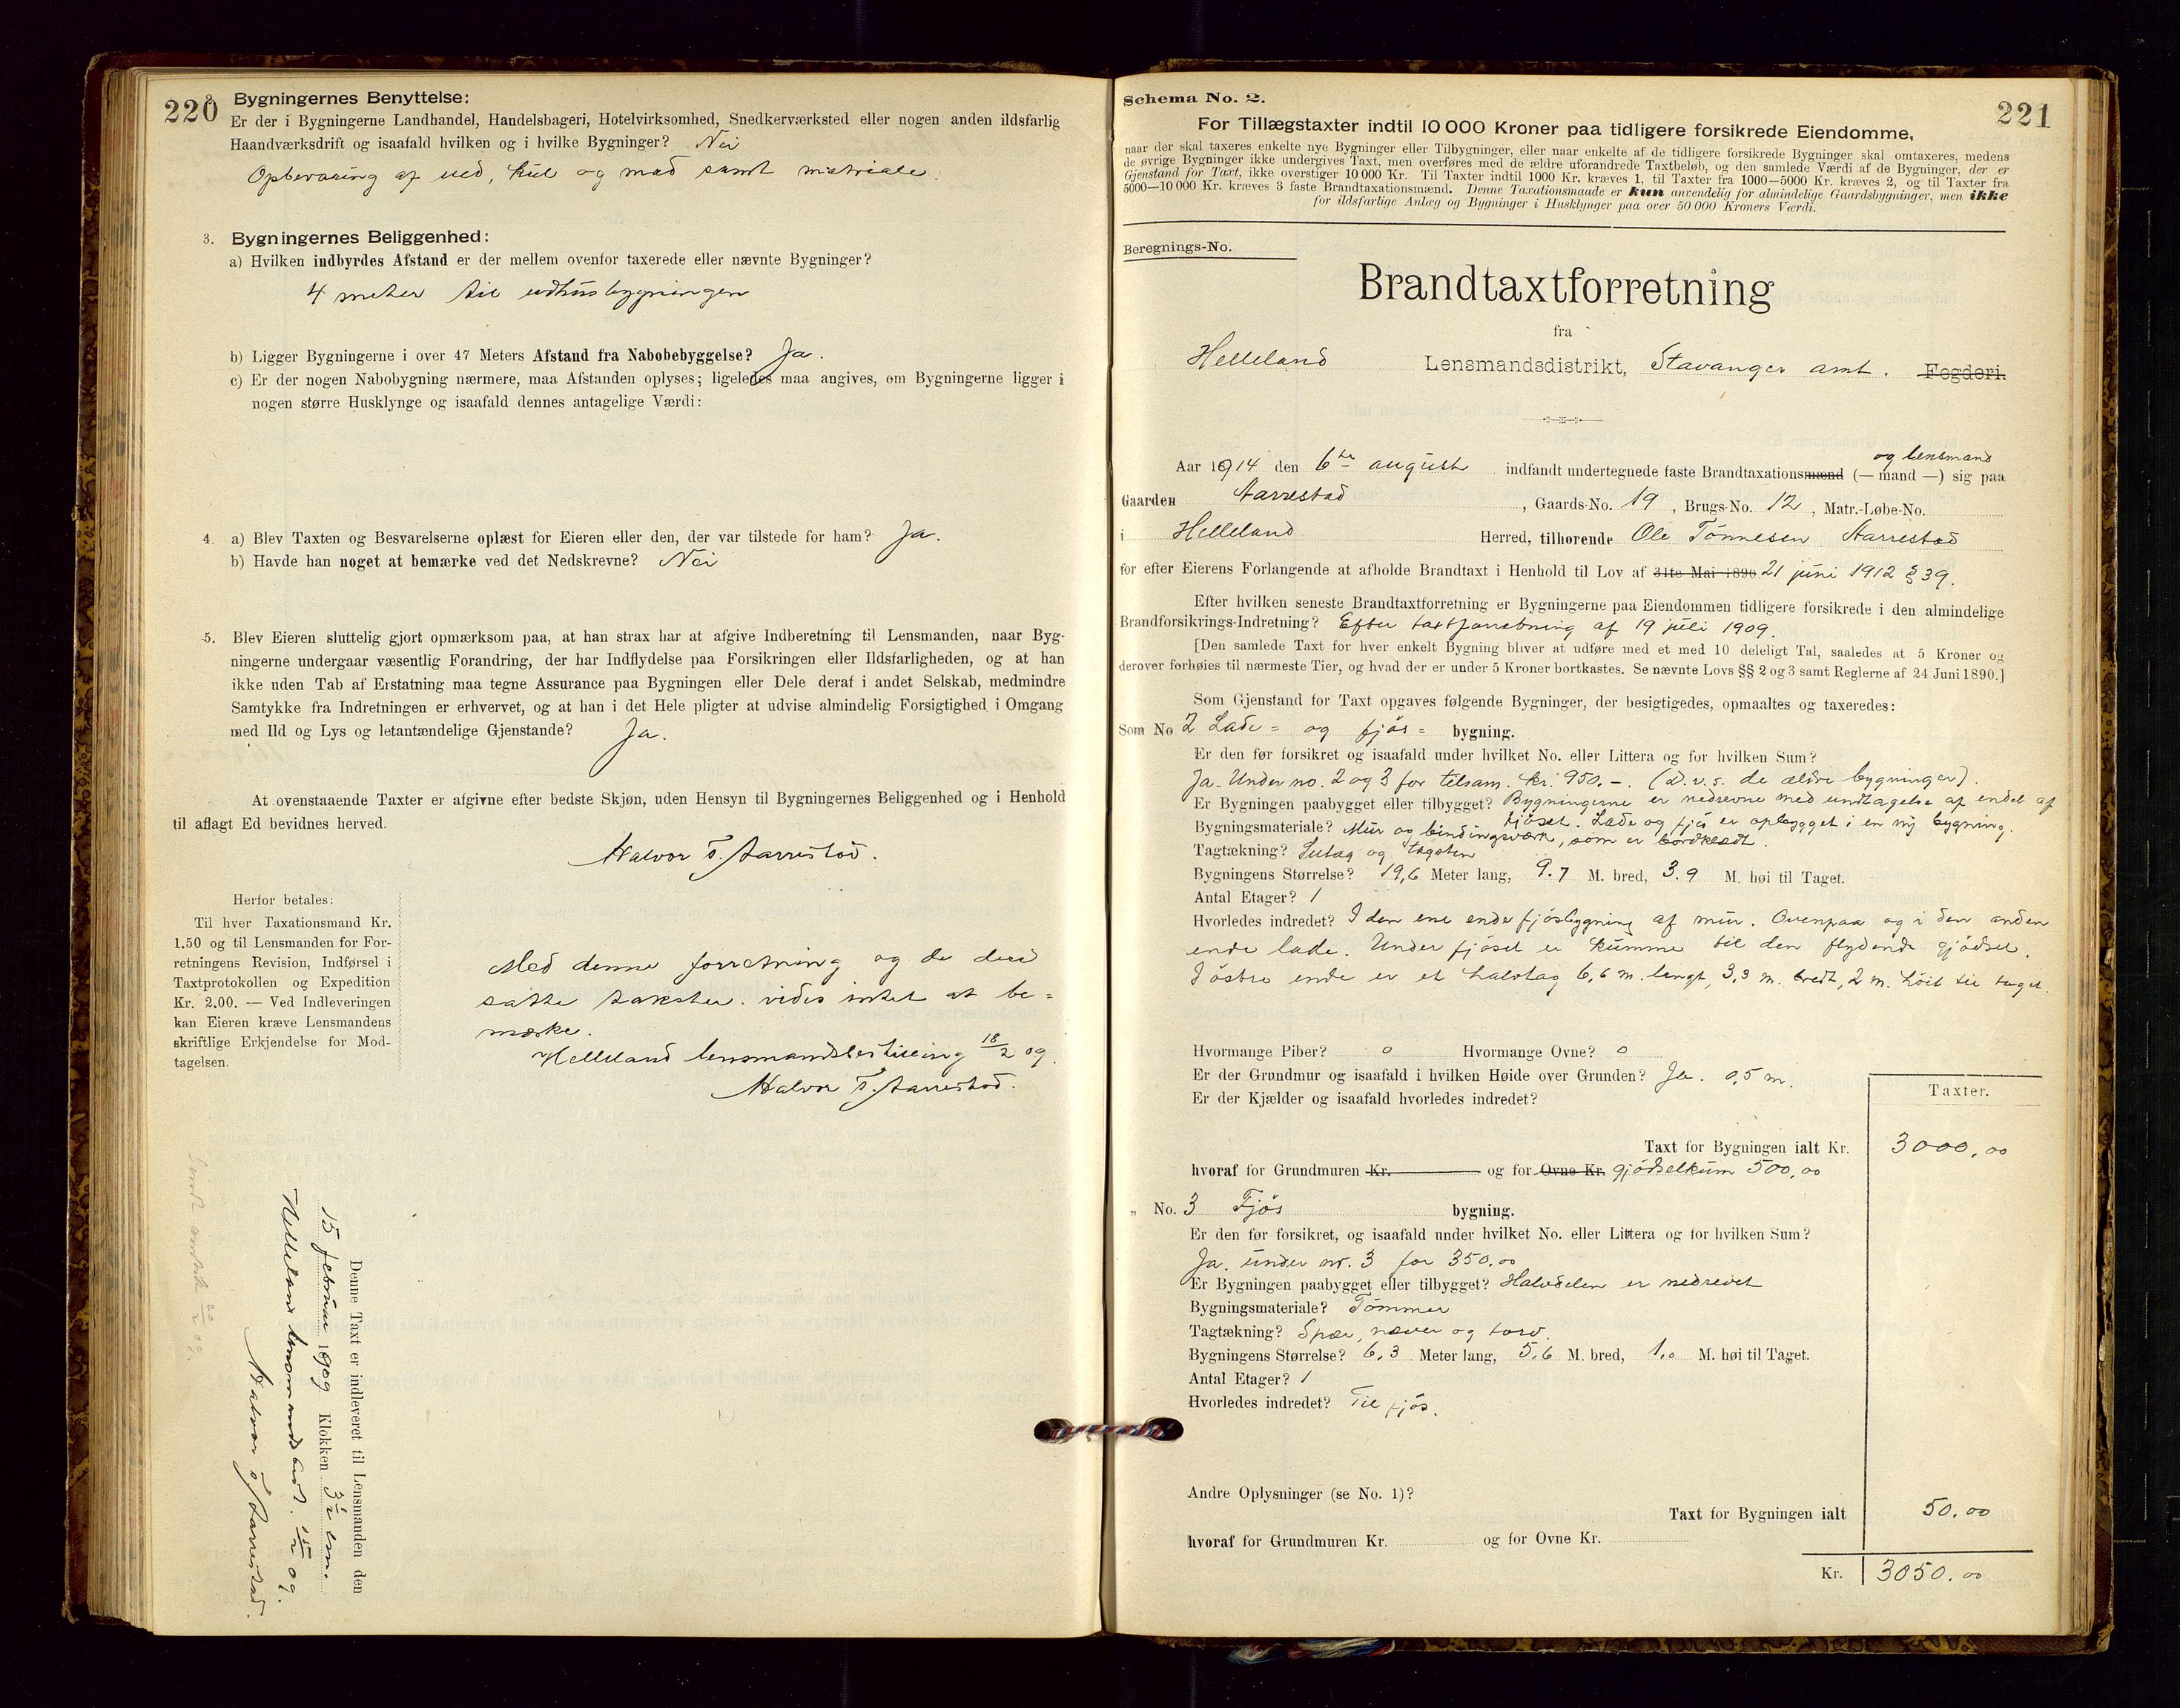 220
2. Bygningernes Benyttelse:
Er der i Bygningerne Landhandel, Handelsbageri, Hotelvirksomhed, Snedkerværksted eller nogen anden ildsfarlig
Haandværksdrift og isaafald hvilken og i hvilke Bygninger? Nei
Opbevaring af ved, kul og mad samt matriale.
3. Bygningernes Beliggenhed:
a) Hvilken indbyrdes Afstand er der mellem ovenfor taxerede eller nævnte Bygninger?
4 meter til udhusbygningen
b) Ligger Bygningerne i over 47 Meters Afstand fra Nabobebyggelse? Ja.
c) Er der nogen Nabobygning nærmere, maa Afstanden oplyses; ligeledes maa angives, om Bygningerne ligger i
nogen større Husklynge og isaafald dennes antagelige Værdi:
4. a) Blev Taxten og Besvarelserne oplæst for Eieren eller den, der var tilstede for ham? Ja.
b) Havde han noget at bemærke ved det Nedskrevne? Nei
5. Blev Eieren sluttelig gjort opmærksom paa, at han strax har at afgive Indberetning til Lensmanden, naar Byg-
ningerne undergaar væsentlig Forandring, der har Indflydelse paa Forsikringen eller Ildsfarligheden, og at han
ikke uden Tab af Erstatning maa tegne Assurance paa Bygningen eller Dele deraf i andet Selskab, medmindre
Samtykke fra Indretningen er erhvervet, og at han i det Hele pligter at udvise almindelig Forsigtighed i Omgang
med Ild og Lys og letantændelige Gjenstande? Ja.
At ovenstaaende Taxter er afgivne efter bedste Skjøn, uden Hensyn til Bygningernes Beliggenhed og i Henhold
til aflagt Ed bevidnes herved.
Halvor T. Aarrestad.
Herfor betales:
Til hver Taxationsmand Kr.
1.50 og til Lensmanden for For-
retningens Revision, Indførsel i
Taxtprotokollen og Expedition
Kr. 2.00. — Ved Indleveringen
kan Eieren kræve Lensmandens
skriftlige Erkjendelse for Mod-
tagelsen.
Med denne forretning og de deri
satte takster vides intet at be=
mærke.
Helleland lensmandsbestilling 18/2 09.
Halvor T. Aarrestad.
Denne Taxt er indleveret til Lensmanden den
15 februar 1909 Klokken 3½ em.
Helleland lensmandsbest. 15/2 09.
Halvor T. Aarrestad.
Sendt amtet 20/2 09.
221
Schema No. 2.
For Tillægstaxter indtil 10 000 Kroner paa tidligere forsikrede Eiendomme,
naar der skal taxeres enkelte nye Bygninger eller Tilbygninger, eller naar enkelte af de tidligere forsikrede Bygninger skal omtaxeres, medens
de øvrige Bygninger ikke undergives Taxt, men overføres med de ældre uforandrede Taxtbeløb, og den samlede Værdi af de Bygninger, der er
Gjenstand for Taxt, ikke overstiger 10 000 Kr. Til Taxter indtil 1000 Kr. kræves 1, til Taxter fra 1000—5000 Kr. kræves 2, og til Taxter fra
5000—10 000 Kr. kræves 3 faste Brandtaxationsmænd. Denne Taxationsmaade er kun anvendelig for almindelige Gaardsbygninger, men ikke
for ildsfarlige Anlæg og Bygninger i Husklynger paa over 50 000 Kroners Værdi.
Beregnings-No.
Brandtaxtforretning
fra
Helleland Lensmandsdistrikt, Stavanger amt. Fogderi.
og lensmand
Aar 1914 den 6te august indfandt undertegnede faste Brandtaxationsmænd (— mand —) sig paa
Gaarden Aarrestad, Gaards-No. 19, Brugs-No. 12, Matr.-Løbe-No.
i Helleland Herred, tilhørende Ole Tönnesen Aarrestad
for efter Eierens Forlangende at afholde Brandtaxt i Henhold til Lov af 31te Mai 1890 21 juni 1912 § 39.
Efter hvilken seneste Brandtaxtforretning er Bygningerne paa Eiendommen tidligere forsikrede i den almindelige
Brandforsikrings-Indretning? Efter taxtforretning af 19 juli 1909.
[Den samlede Taxt for hver enkelt Bygning bliver at udføre med et med 10 deleligt Tal, saaledes at 5 Kroner og
derover forhøies til nærmeste Tier, og hvad der er under 5 Kroner bortkastes. Se nævnte Lovs §§ 2 og 3 samt Reglerne af 24 Juni 1890.]
Som Gjenstand for Taxt opgaves følgende Bygninger, der besigtigedes, opmaaltes og taxeredes:
Som No 2 Lade= og fjös= bygning.
Er den før forsikret og isaafald under hvilket No. eller Littera og for hvilken Sum?
Ja. Under no. 2 og 3 for tilsam. kr. 950.-. (D.v.s. de ældre bygninger).
Er Bygningen paabygget eller tilbygget? Bygningerne er nedrevne med undtagelse af endel af
fjöset. Lade og fjös er opbygget i en ny bygning.
Bygningsmateriale? Mur og bindingsværk, som er bordklædt.
Tagtækning? Sutag og tagsten
Bygningens Størrelse? 19,6 Meter lang, 9.7 M. bred, 3.9 M. høi til Taget.
Antal Etager? 1
Hvorledes indredet? I den ene ende fjösbygning af mur. Ovenpaa og i den anden
ende lade. Under fjöset er kumme til den flydende gjödsel.
I östre ende er et halvtag 6,6 m. langt, 3,3 m. bredt, 2 m. höit til taget.
Hvormange Piber? 0 Hvormange Ovne? 0
Er der Grundmur og isaafald i hvilken Høide over Grunden? Ja. 0,5 m.
Er der Kjælder og isaafald hvorledes indredet?
Taxter.
Taxt for Bygningen ialt Kr. 3000,00
hvoraf for Grundmuren Kr. og for Ovne Kr. gjödselkum 500,00
„ No. 3 Fjös bygning.
Er den før forsikret, og isaafald under hvilket No. eller Littera og for hvilken Sum?
Ja. under nr. 3 for 350.00
Er Bygningen paabygget eller tilbygget? Halvdelen er nedrevet
Bygningsmateriale? Tömmer
Tagtækning? Spær, næver og torv.
Bygningens Størrelse? 6,3 Meter lang, 5,6 M. bred, 1,0 M. høi til Taget.
Antal Etager? 1
Hvorledes indredet? Til fjös.
Andre Oplysninger (se No. 1)?
Taxt for Bygningen ialt 50.00
hvoraf for Grundmuren Kr. og for Ovne Kr.
Kr. 3050.00